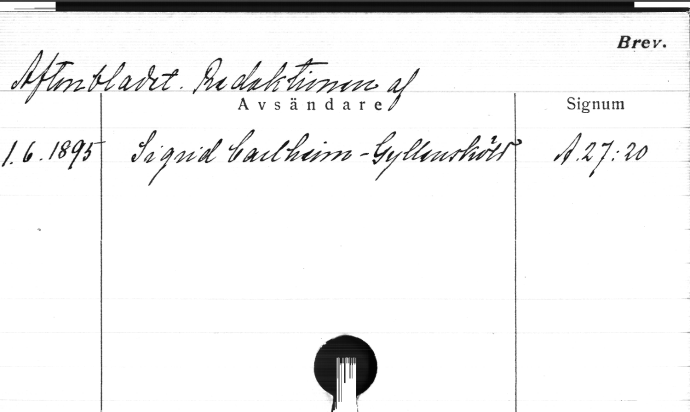 Brev.
Aftonbladet. Redaktionen af
Avsändare
Signum
1.6.1895 Sigrid Carlheim-Gyllensköld A.27:20